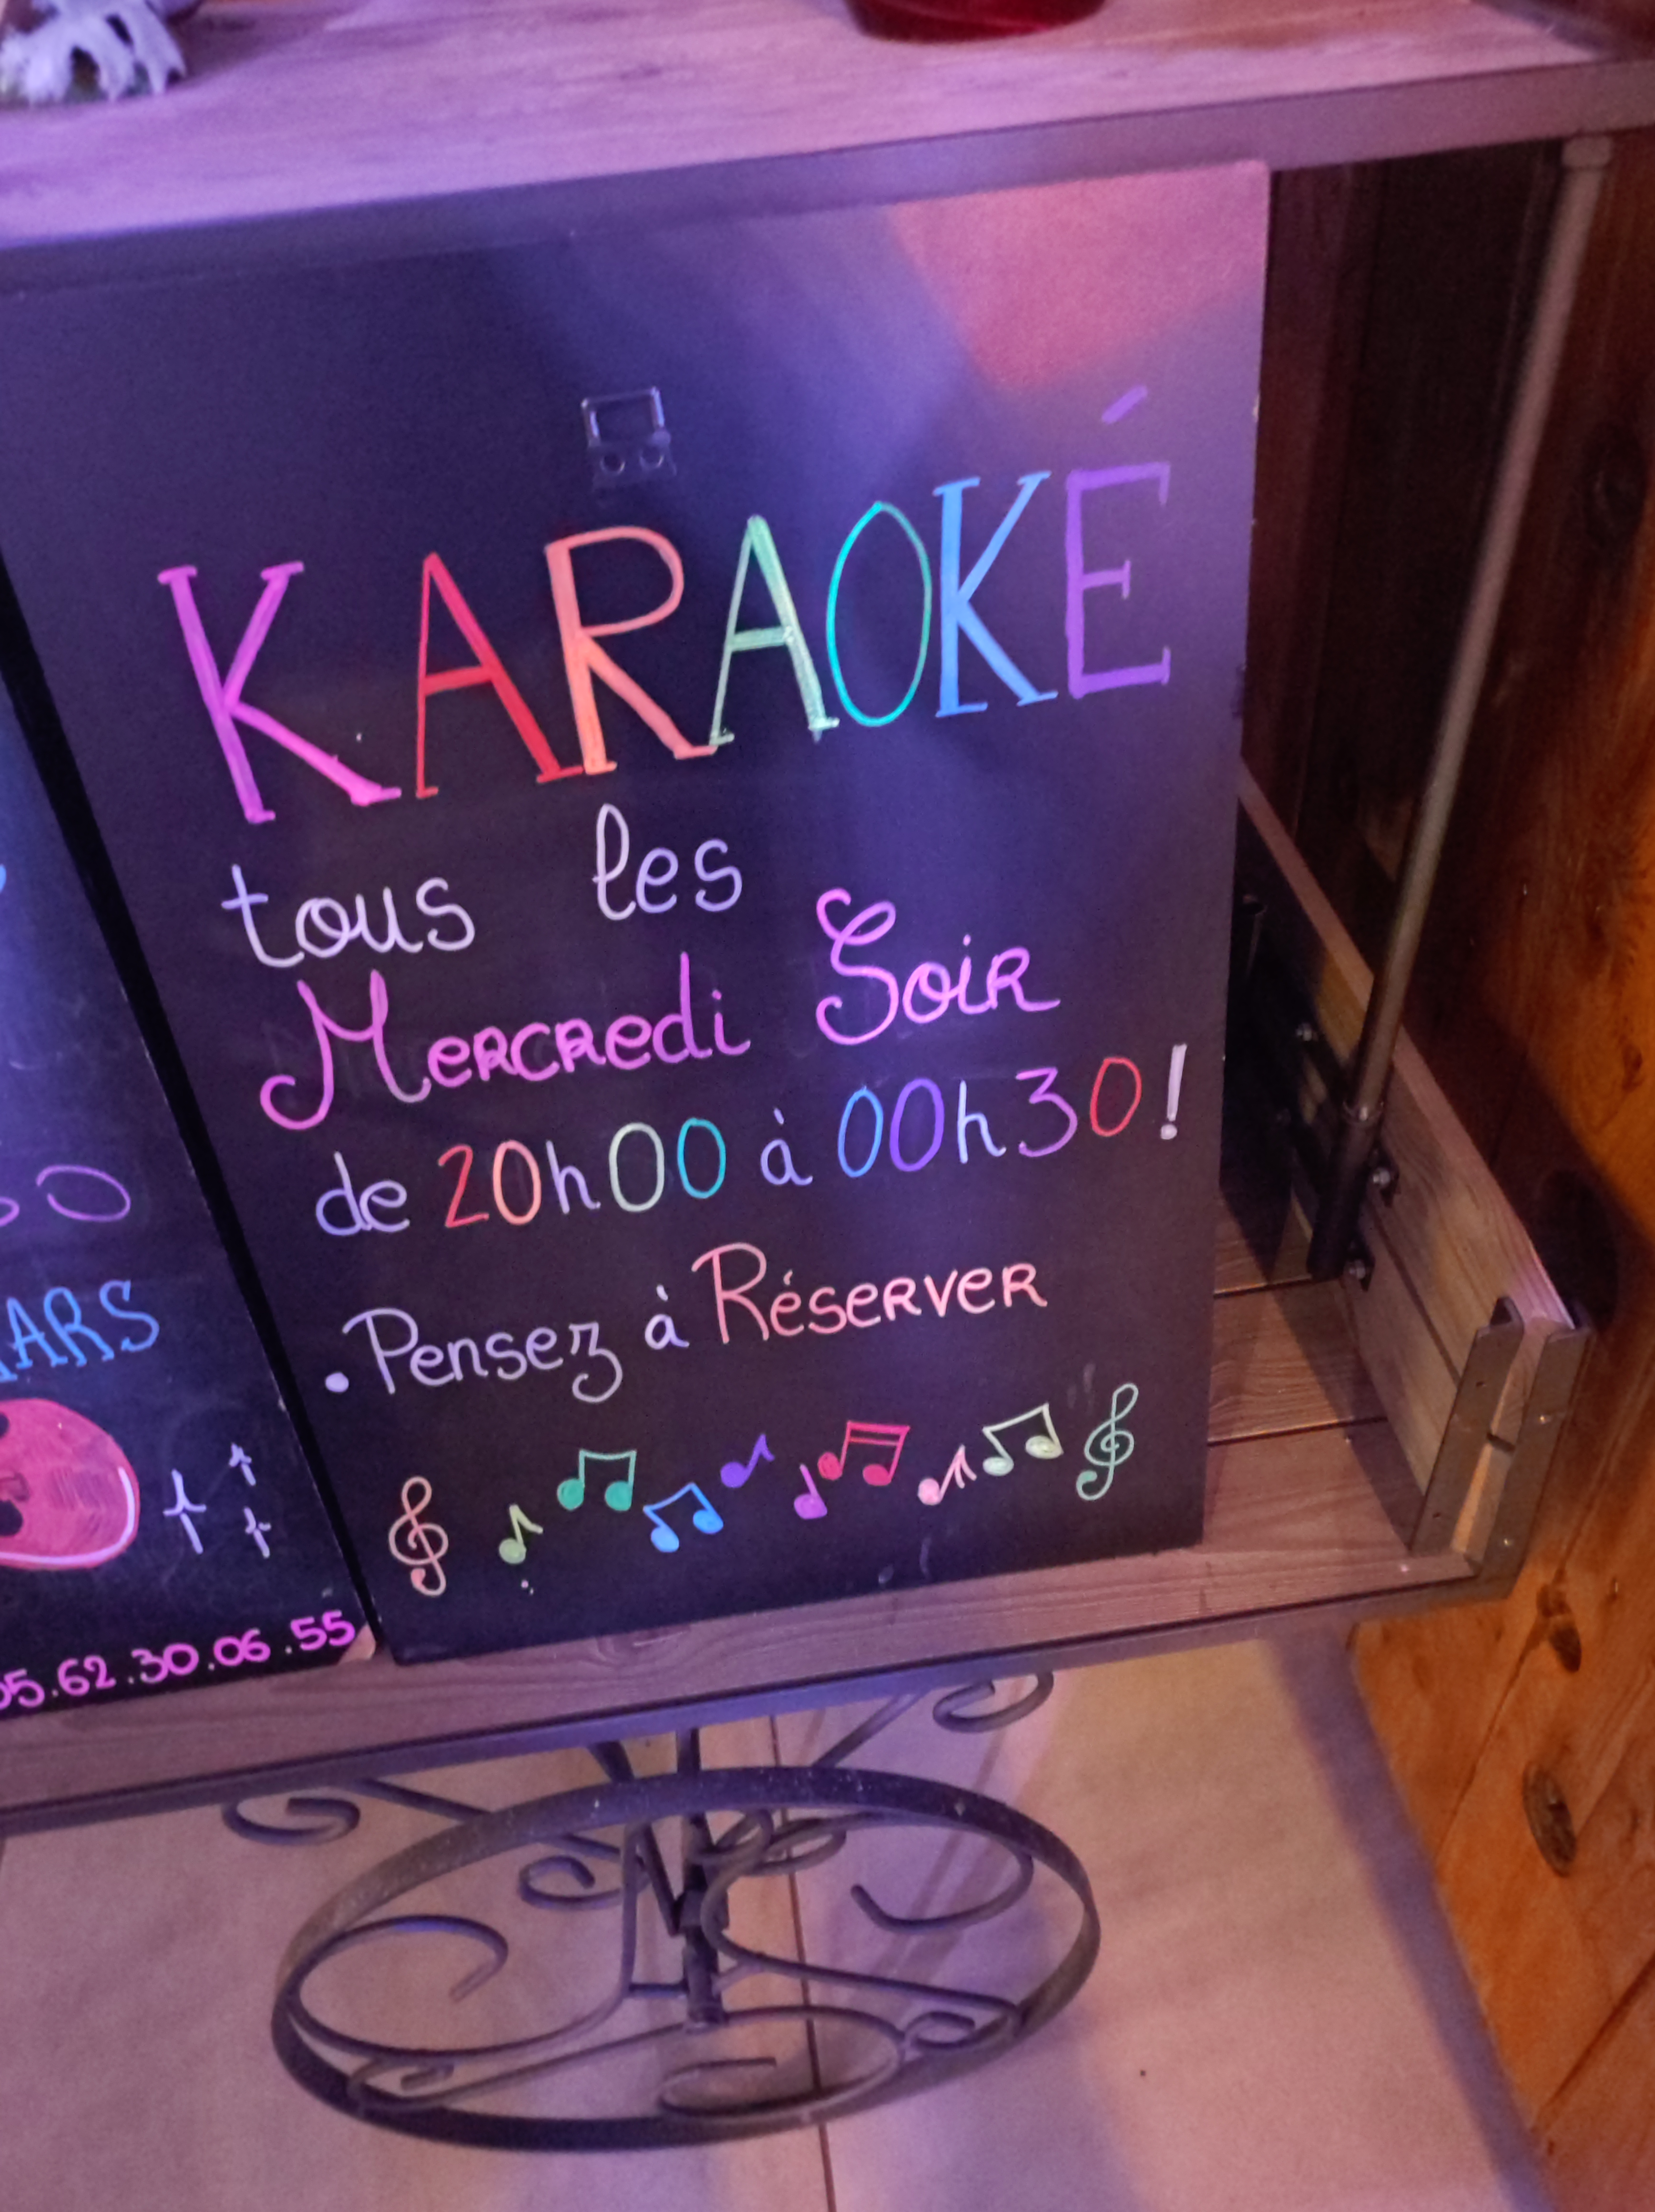 KARAOKÉ
tous les
Mercredi Soir
de 20h00 à 00h30!
• Pensez à Réserver
05.62.30.06.55